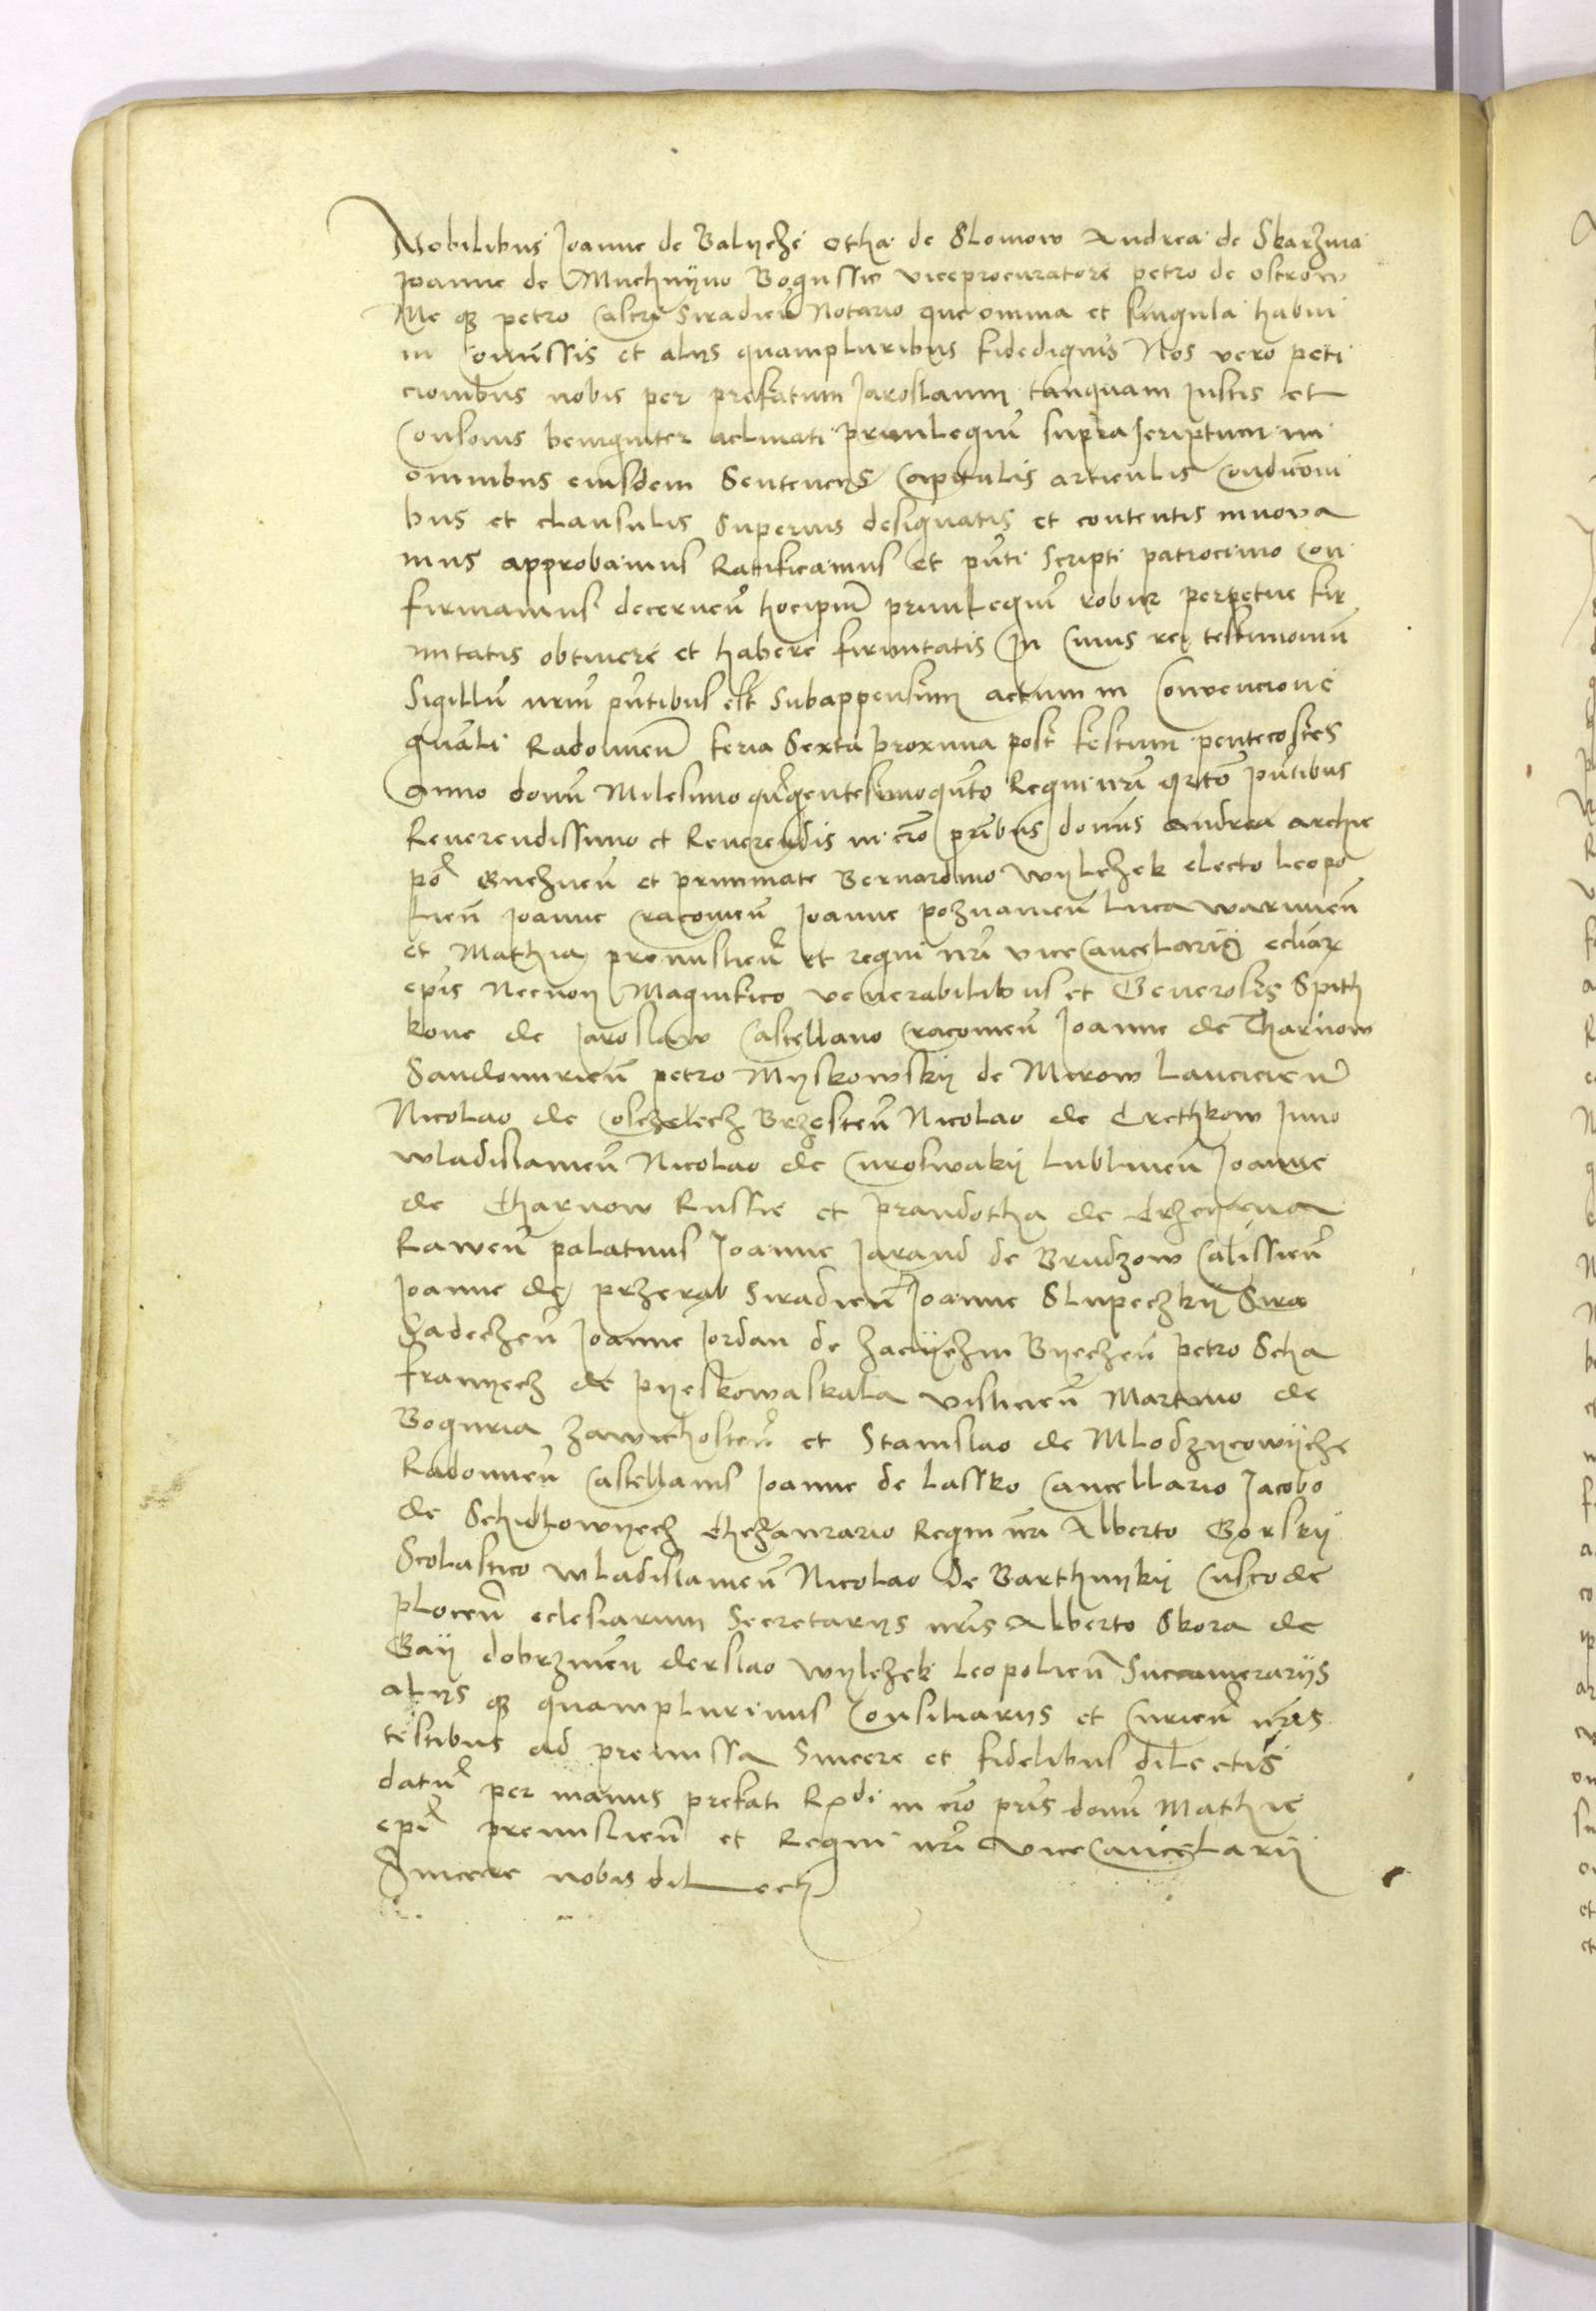 Nobilibus Joanne de Balyche Otha de Slomow Andrea de Skarzina
Joanne de Muchnyno Bogussie viceprocuratore petro de ostrow
Me qz petro Castri Siradien̄ Notario que omnia et singula habui
in Comissis et alijs quampluribus fidedignis Nos vero peti
cionibus nobis per prefatum Jaroslaum tanquam Justis et
Consonis benigniter aclinati priuilegiū supra scriptum in
omnibus eiusdem Sentencijs Capitulis articulis Condicōni
bus et clausulis Superius designatis et contentis innova
mus approbamus Ratificamus et pn̄ti scripti patrocinio Con
firmamus decernen̄ hocipm̄ priuilegiū robur perpetue fir
mitatis obtinere et habere firmitatis In Cuius rei testimoniū
Sigillū nrm̄ pn̄tibus est Subappensum actum in Convencione
gn̄ali Radomien̄ feria Sexta proxima post festum pentecostes
Anno domī Milesimo qn̄gentesimoquīto Regni nr̄i qrto pn̄tibus
Reverendissimo et Reverendis in cr̄o pr̄ibus domīs Andrea archie
pō Gneznen̄ et primmate Bernardino Wylchek electo Leopo
lien̄ Joanne racovien̄ Joanne poznanien̄ Luca warmien̄
et Mathia premislien̄ et regni nr̄i viceCancelario ecliar
epīs Necnon Magnifico venerabilibus et Generosis Spith
kone de Jaroslaw Castellano Cracovien̄ Joanne de Tharnow
Sandomirien̄ petro Myskowsky de Mirow Lancicien̄
Nicolao de Coschelech Brzesten̄ Nicolao de Crethkow Juno
wladislamen̄ Nicolao de Curoswaky Lublinen̄ Joanne
de Tharnow Russie et prandotha de Trzcyana
Rawen̄ palatinis Joanne Jarand de Brudzow Calissien̄
Joanne de przerab Siradien̄ Joanne Slupeczky Sira
Sadechen̄ Joanne Jordan de Zaclyczin Byechen̄ petro Scha
franyech de pyeskowaskala vislicien̄ Martino de
Boguria Zawichosten̄ et Stanislao de Mlodzyeowyche
Radomien̄ Castellanis Joanne de Lassko Cancellario Jacobo
de Schidlowyech thezaurario Regni nr̄i Alberto Gorsky
Scolastico wladislamen̄ Nicolao de Barthnyky Custode
plocen̄ eclesiarum Secretarijs nr̄is Alberto Skora de
Gay dobrzinen̄ derslao Wylchek Leopolien̄ Succamerarijs
alijs qz quamplurimis Consiliarijs et Curien̄ nr̄is
testibus ad premissa Sincere et fidelibus dilectis
datū per manus prefati Rndi in cr̄o pr̄is domī Mathie
epī premislien̄ et Regni nr̄i viceCancelarij
Sincere nobis dilecti